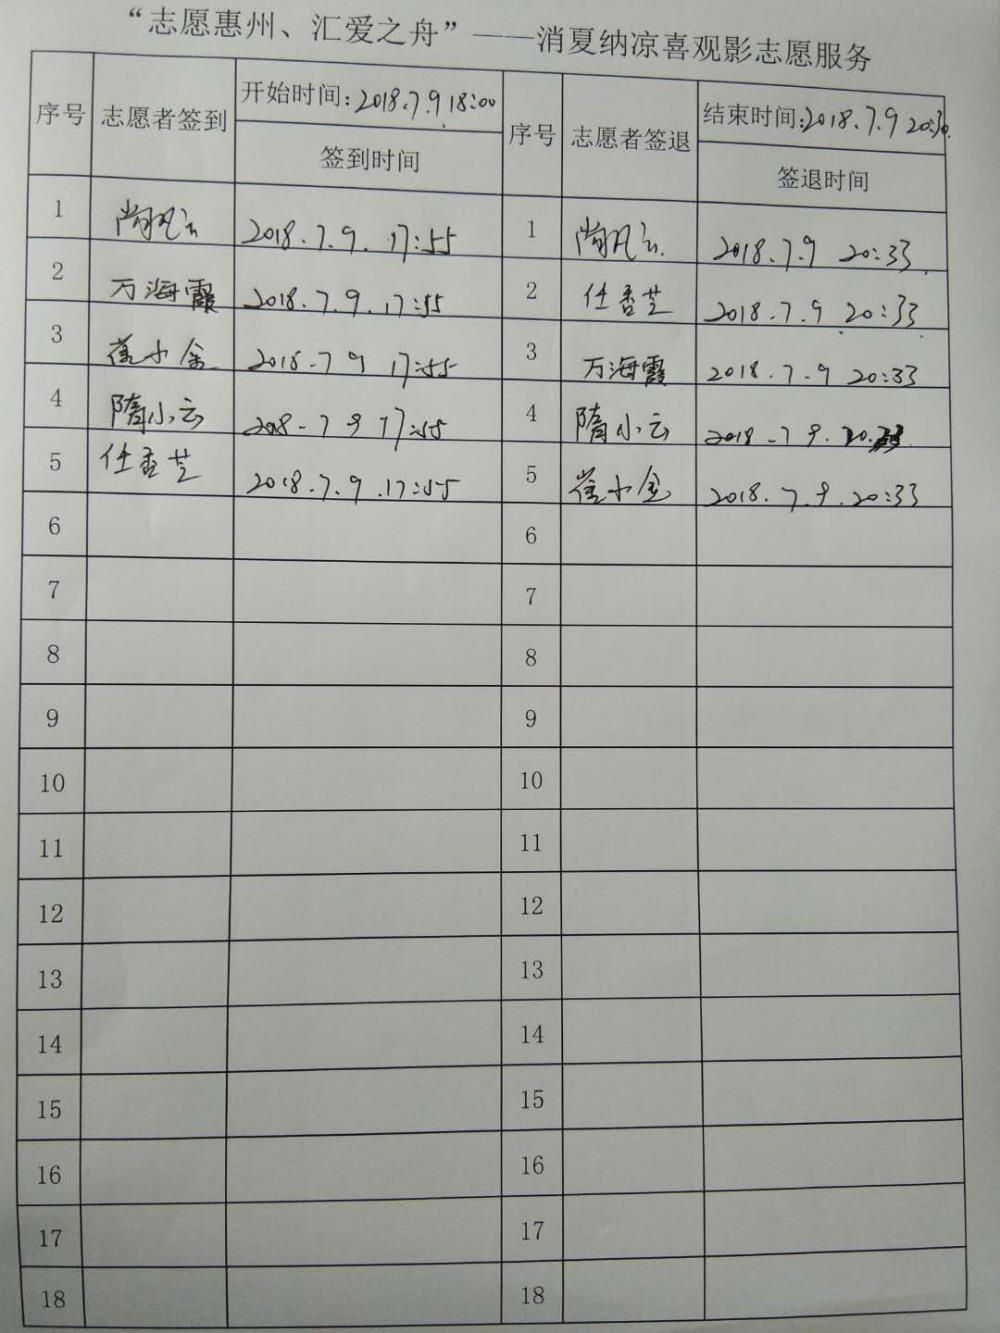 “志愿惠州、汇爱之舟”——消夏纳凉喜观影志愿服务
序号 志愿者签到 开始时间:2018.7.9 18:00 序号 志愿者签退 结束时间:2018.7.9 20:30
签到时间 签退时间
1 尚凤云 2018.7.9. 17:55 1 尚凤云 2018.7.9 20:33
2 万海霞 2018.7.9.17:55 2 任香芝 2018.7.9 20:33
3 崔小金 2018.7 9 17:55 3 万海霞 2018.7.9 20:33
4 隋小云 2018-7 9 17:55 4 隋小云 2018-7 9. 20.33
5 任香芝 2018.7.9.17:55 5 崔小金 2018.7.9.20:33
6 6
7 7
8 8
9 9
10 10
11 11
12 12
13 13
14 14
15 15
16 16
17 17
18 18